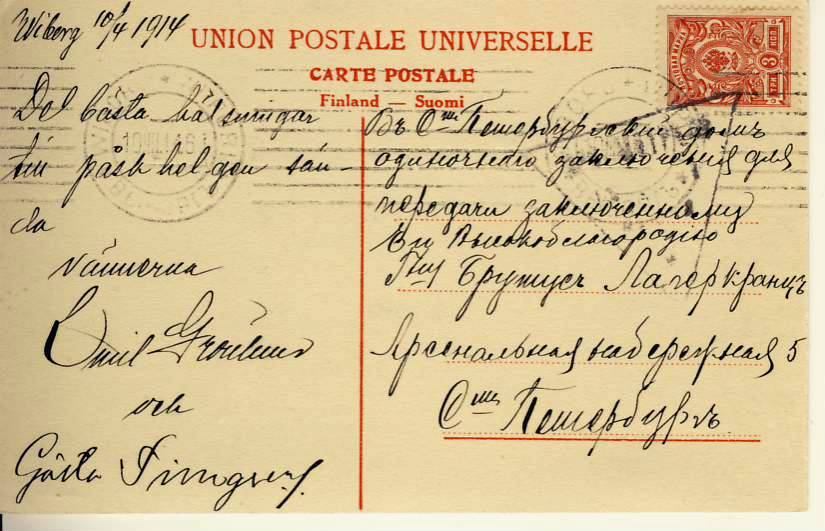 Wiborg 10/4 1914
UNION POSTALE UNIVERSELLE
CARTE POSTALE
Finland — Suomi
De bästa hälsningar
till påskhelgen sän-
da
vännerna
Emil
och
Gösta
Въ С.ᵗᵗ Петербургскій домъ
одиночнаго заключенія для
передачи заключенному
Его Высокоблагородію
Г-ну Брутусъ Лагеркранцъ
Арсенальная набережная 5
С.ᵗᵗ Петербургъ
3 КОП